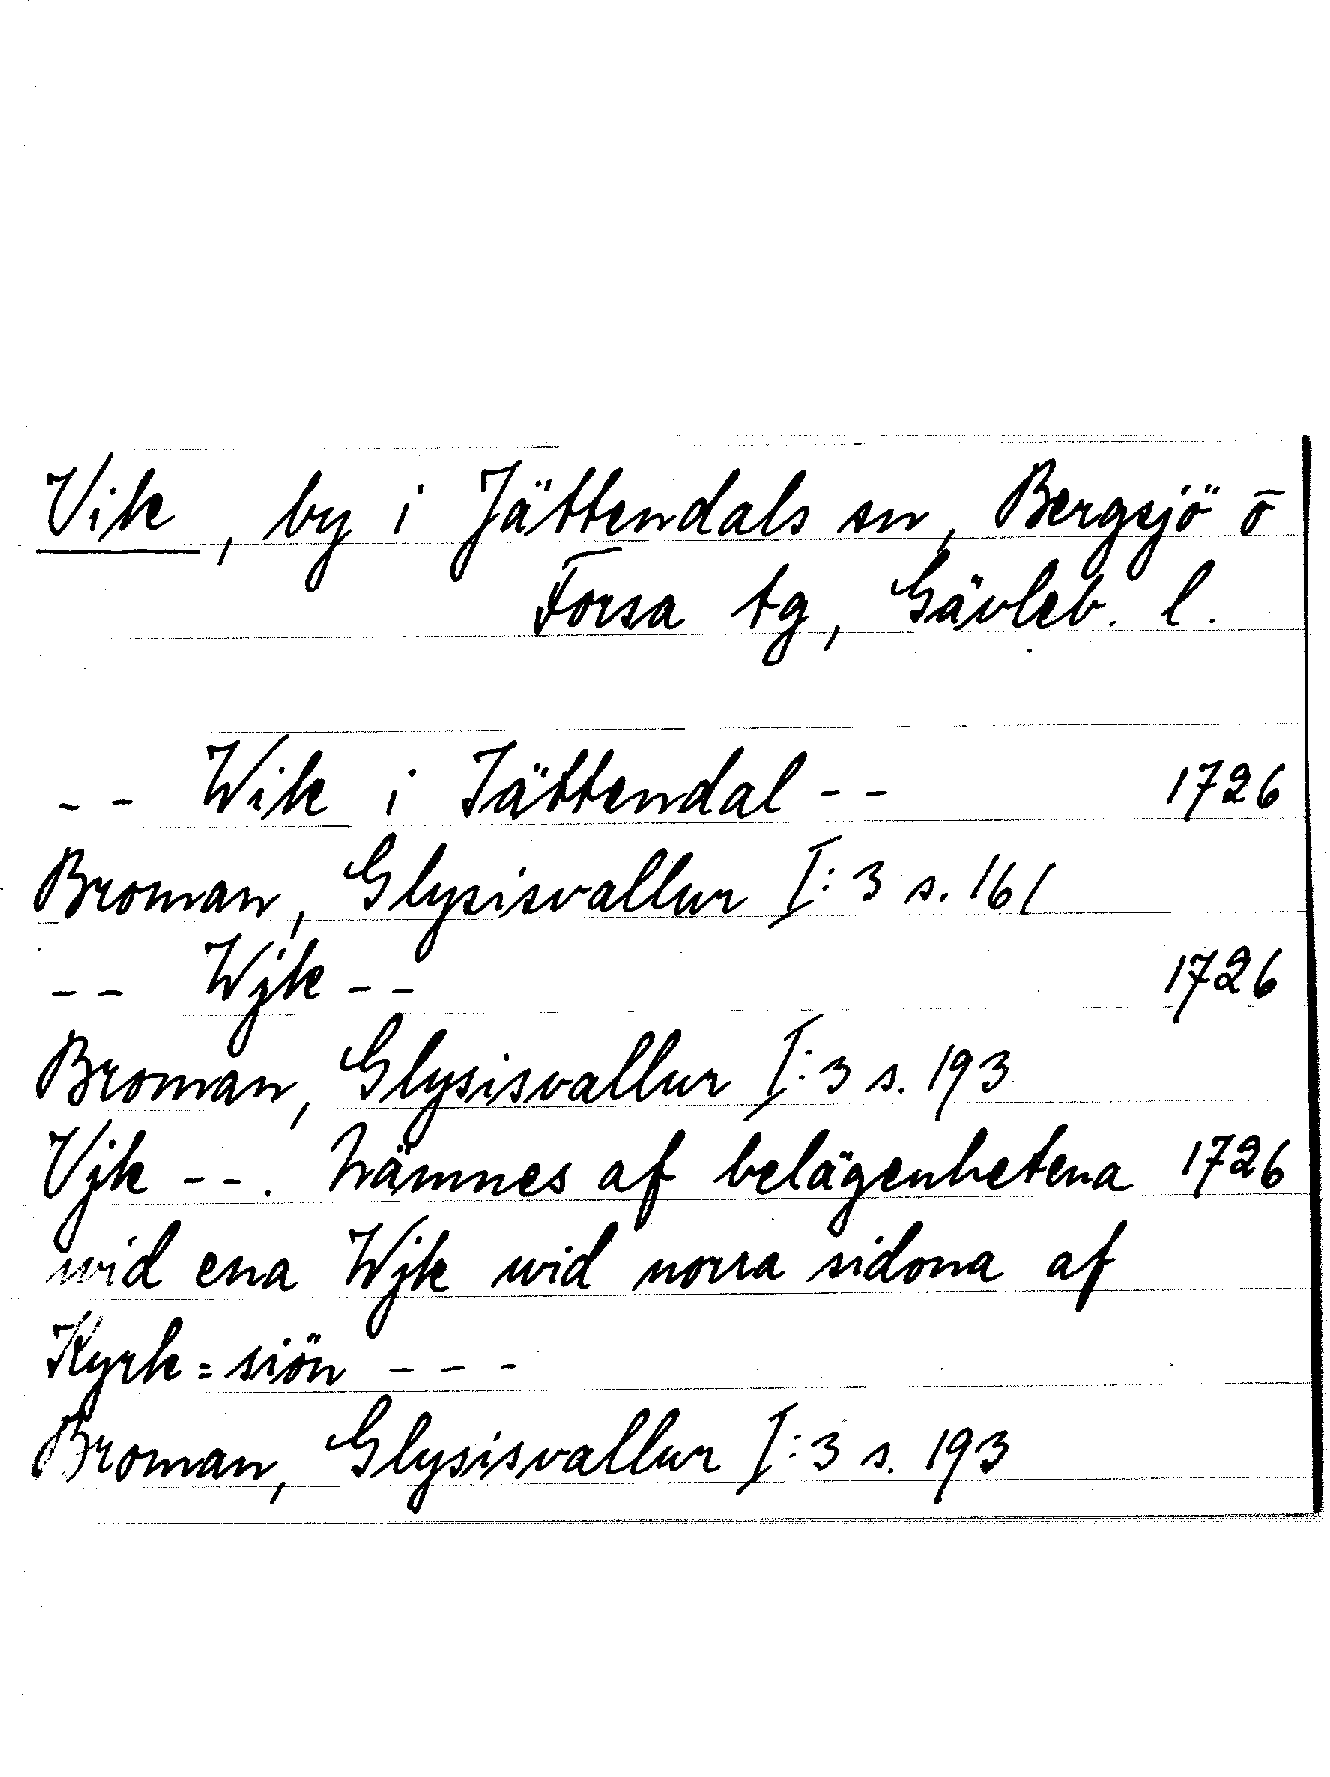 Vik, by i Jättendals sn, Bergsjö ō
Forsa tg, Gävleb. l.
-- Wik i Jättendal -- 1726
Broman, Glysisvallur I:3 s. 161
-- Wjk -- 1726
Broman, Glysisvallur I:3 s. 193
Vjk --. Nämnes af belägenhetena 1726
wid ena Wjk wid norra sidona af
Kyrk=siön ---
Broman, Glysisvallur I:3 s. 193